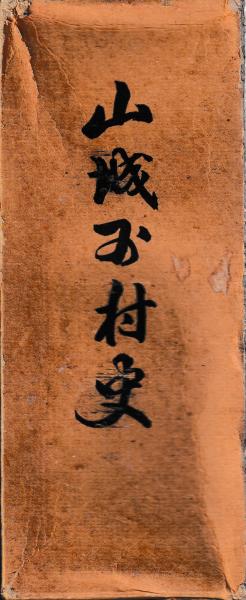 山城谷村史